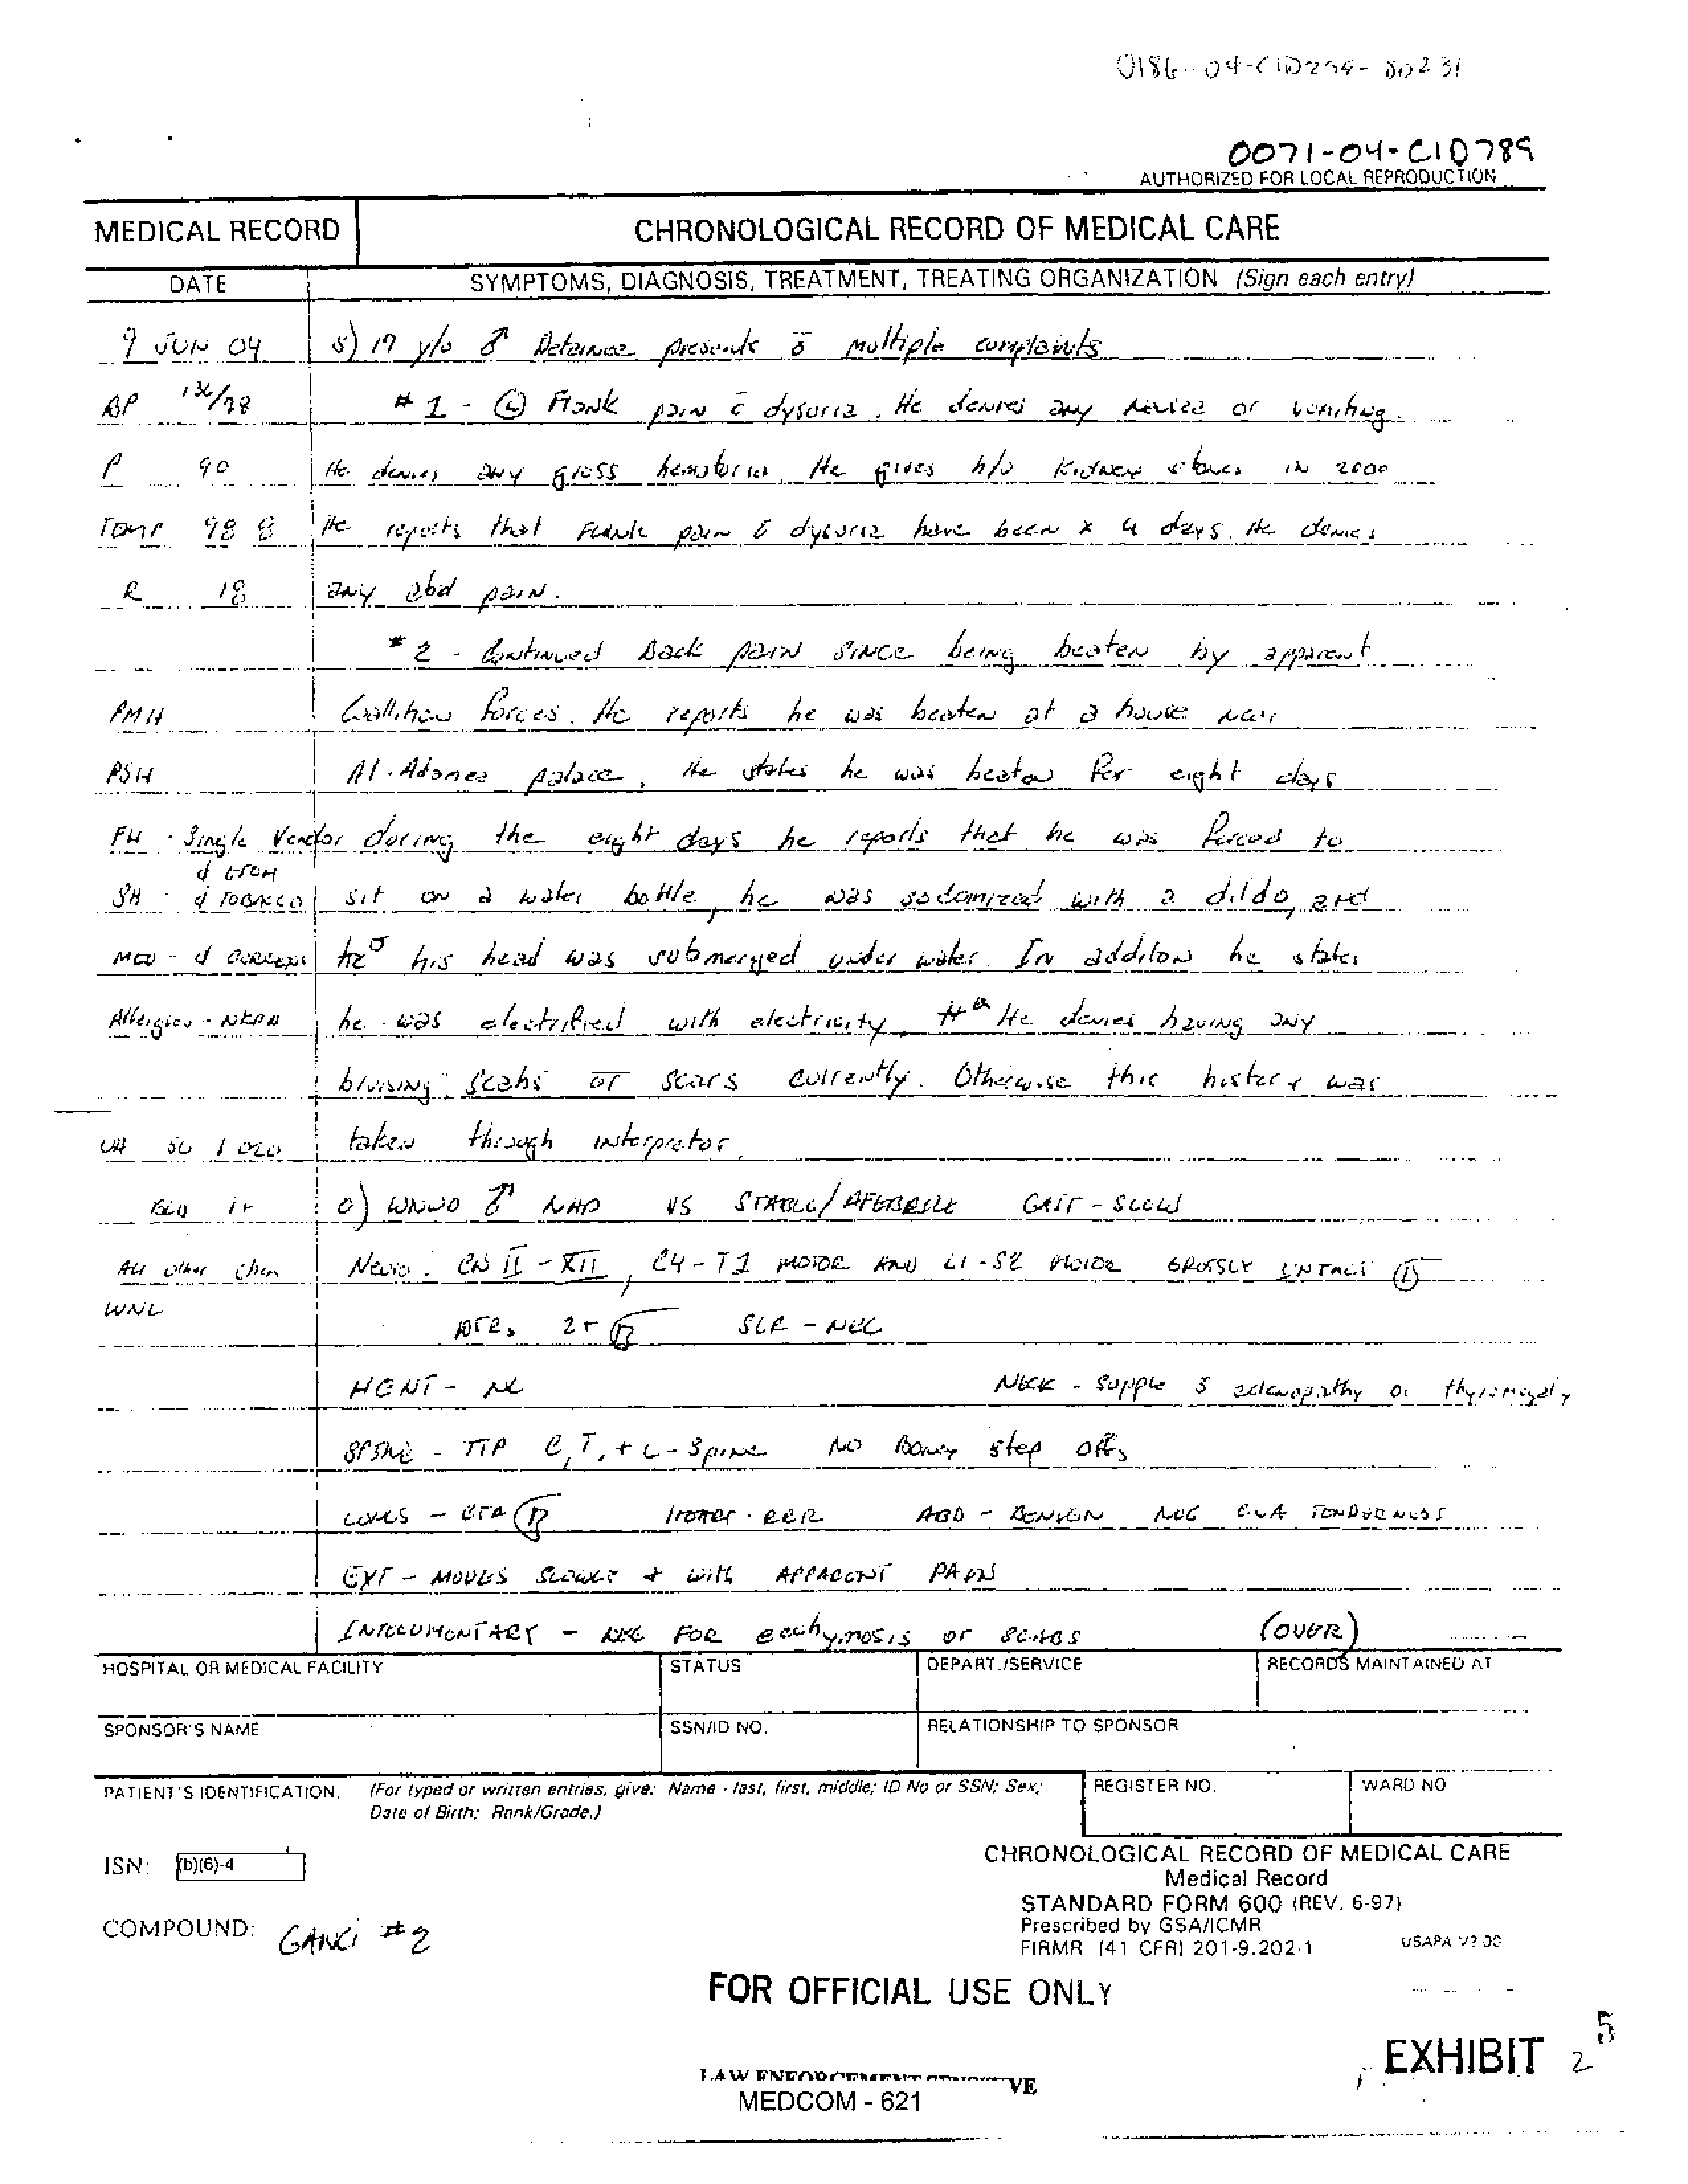 0186-04-CID259-80231
0071-04-CID789
AUTHORIZED FOR LOCAL REPRODUCTION
MEDICAL RECORD
CHRONOLOGICAL RECORD OF MEDICAL CARE
DATE
SYMPTOMS, DIAGNOSIS, TREATMENT, TREATING ORGANIZATION (Sign each entry)
9 JUN 04 S) 17 y/o ♂ Detainee presents c̄ multiple complaints
BP 136/78 #1 - Ⓛ Flank pain c̄ dysuria. He denies any or vomiting.
P 90 He denies any gross hematuria. He gives h/o Kidney stones in 2000
Temp 98 8 He reports that Flank pain c̄ dysuria have been x 4 days. He denies
R 18 any abd pain.
#2 - Continued Back pain since being beaten by apparent
PMH Coalition forces. He reports he was beaten at a house near
PSH Al-Adamea palace. He states he was beaten for eight days
FH - Single Vendor during the eight days he reports that he was forced to
∅ ETOH
SH - ∅ TOBACCO sit on a water bottle, he was sodomized with a dildo, and
MED - ∅ CURRENT his head was submerged under water. In additon he states
Allergies - NKDA he was electrified with electricity. He denies having any
bruising, scabs or scars currently. Otherwise this history was
UA SG 1.020 taken through interpretor.
BLD 1+ O) WNWD ♂ NAD VS STABLE/AFEBRILE GAIT - SLOW
All other chem Neuro: CN II-XII, C4-T1 MOTOR AND L1-S2 MOTOR GROSSLY INTACT Ⓑ
WNL
DTRs 2+ Ⓑ SLR - NEG
HENT - NL NECK - Supple s̄ adenopathy or thyromegaly
SPINE - TTP C, T, + L-Spine NO Boney step offs
LUNGS - CTA Ⓑ HEART - RRR ABD - BENIGN NEG CVA TENDERNESS
EXT - MOVES SLOWLY + with APPARENT PAIN
INTEGUMENTARY - NEG FOR ecchymosis or SCABS (OVER)
HOSPITAL OR MEDICAL FACILITY
STATUS
DEPART./SERVICE
RECORDS MAINTAINED AT
SPONSOR'S NAME
SSN/ID NO.
RELATIONSHIP TO SPONSOR
PATIENT'S IDENTIFICATION. (For typed or written entries, give: Name - last, first, middle; ID No or SSN; Sex;
Date of Birth; Rank/Grade.)
REGISTER NO.
WARD NO
ISN: (b)(6)-4
COMPOUND: GANCI #2
CHRONOLOGICAL RECORD OF MEDICAL CARE
Medical Record
STANDARD FORM 600 (REV. 6-97)
Prescribed by GSA/ICMR
FIRMR (41 CFR) 201-9.202-1
USAPA V2.00
FOR OFFICIAL USE ONLY
EXHIBIT 25
LAW ENFORCEMENT
MEDCOM - 621